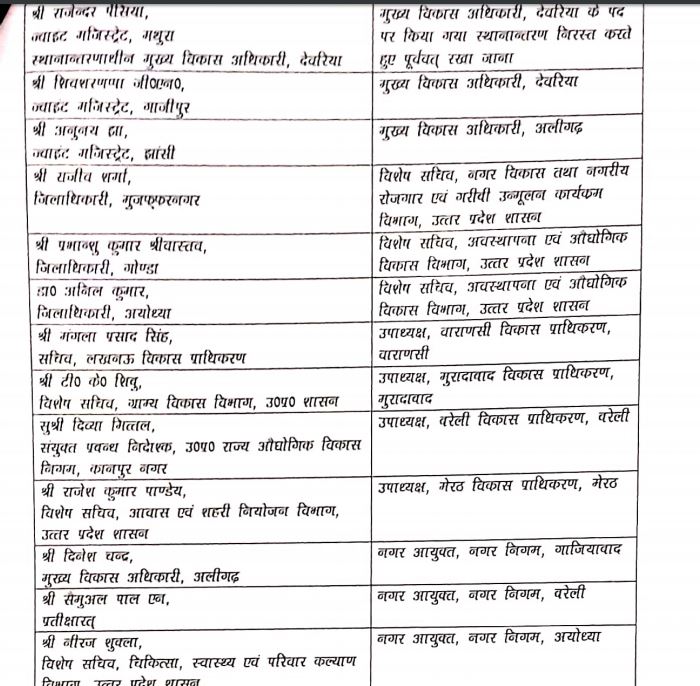 श्री राजेन्दर पेंसिया,
ज्वाइट मजिस्ट्रेट, मथुरा
स्थानान्तरणाधीन मुख्य विकास अधिकारी, देवरिया
मुख्य विकास अधिकारी, देवरिया के पद
पर किया गया स्थानान्तरण निरस्त करते
हुए पूर्ववत् रखा जाना
श्री शिवशरणप्पा जी०एन०,
ज्वाइट मजिस्ट्रेट, गाजीपुर
मुख्य विकास अधिकारी, देवरिया
श्री अनुनय झा,
ज्वाइंट मजिस्ट्रेट, झांसी
मुख्य विकास अधिकारी, अलीगढ़
श्री राजीव शर्मा,
जिलाधिकारी, मुजफ्फरनगर
विशेष सचिव, नगर विकास तथा नगरीय
रोजगार एवं गरीबी उन्मूलन कार्यकम
विभाग, उत्तर प्रदेश शासन
श्री प्रभान्शु कुमार श्रीवास्तव,
जिलाधिकारी, गोण्डा
विशेष सचिव, अवस्थापना एवं औद्योगिक
विकास विभाग, उत्तर प्रदेश शासन
डा० अनिल कुमार,
जिलाधिकारी, अयोध्या
विशेष सचिव, अवस्थापना एवं औद्योगिक
विकास विभाग, उत्तर प्रदेश शासन
श्री मंगला प्रसाद सिंह,
सचिव, लखनऊ विकास प्राधिकरण
उपाध्यक्ष, वाराणसी विकास प्राधिकरण,
वाराणसी
श्री टी० के० शिबु,
विशेष सचिव, ग्राम्य विकास विभाग, उ०प्र० शासन
उपाध्यक्ष, मुरादाबाद विकास प्राधिकरण,
मुरादाबाद
सुश्री दिव्या मित्तल,
संयुक्त प्रबन्ध निदेशक, उ०प्र० राज्य औद्योगिक विकास
निगम, कानपुर नगर
उपाध्यक्ष, बरेली विकास प्राधिकरण, बरेली
श्री राजेश कुमार पाण्डेय,
विशेष सचिव, आवास एवं शहरी नियोजन विभाग,
उत्तर प्रदेश शासन
उपाध्यक्ष, मेरठ विकास प्राधिकरण, मेरठ
श्री दिनेश चन्द्र,
मुख्य विकास अधिकारी, अलीगढ़
नगर आयुक्त, नगर निगम, गाजियाबाद
श्री सैमुअल पाल एन,
प्रतीक्षारत्
नगर आयुक्त, नगर निगम, बरेली
श्री नीरज शुक्ला,
विशेष सचिव, चिकित्सा, स्वास्थ्य एवं परिवार कल्याण
विभाग, उत्तर प्रदेश शासन
नगर आयुक्त, नगर निगम, अयोध्या